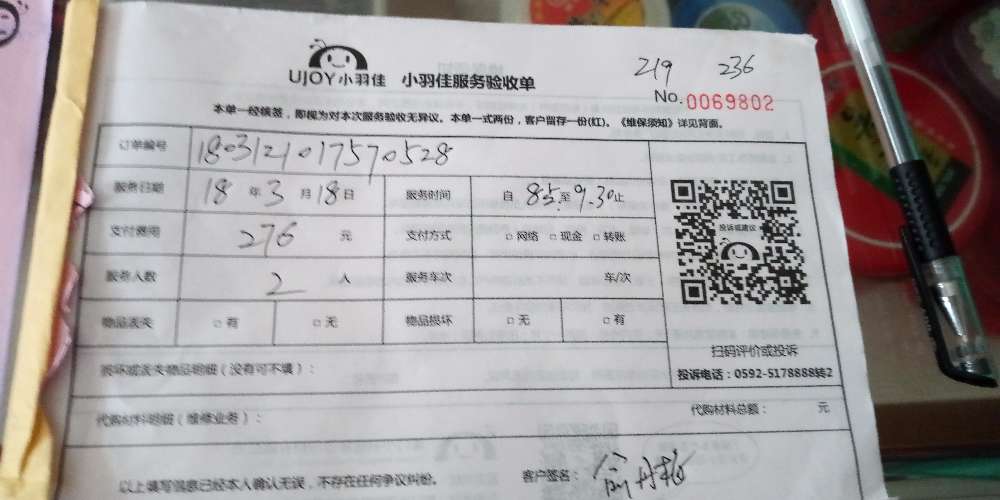 219 236
UJOY小羽佳 小羽佳服务验收单
No.0069802
本单一经核签,即视为对本次服务验收无异议。本单一式两份,客户留存一份(红)。《维保须知》详见背面。
订单编号 1803121017570528
服务日期 18 年 3 月 18 日 服务时间 自 8.5 至 9.30 止
支付费用 276 元 支付方式 □ 网络 □ 现金 □ 转账
投诉或建议
服务人数 2 人 服务车次 车/次
物品丢失 □ 有 □ 无 物品损坏 □ 无 □ 有
扫码评价或投诉
损坏或丢失物品明细(没有可不填): 投诉电话:0592-5178888转2
代购材料明细(维修业务): 代购材料总额: 元
以上填写信息已经本人确认无误,不存在任何争议纠纷。 客户签名: